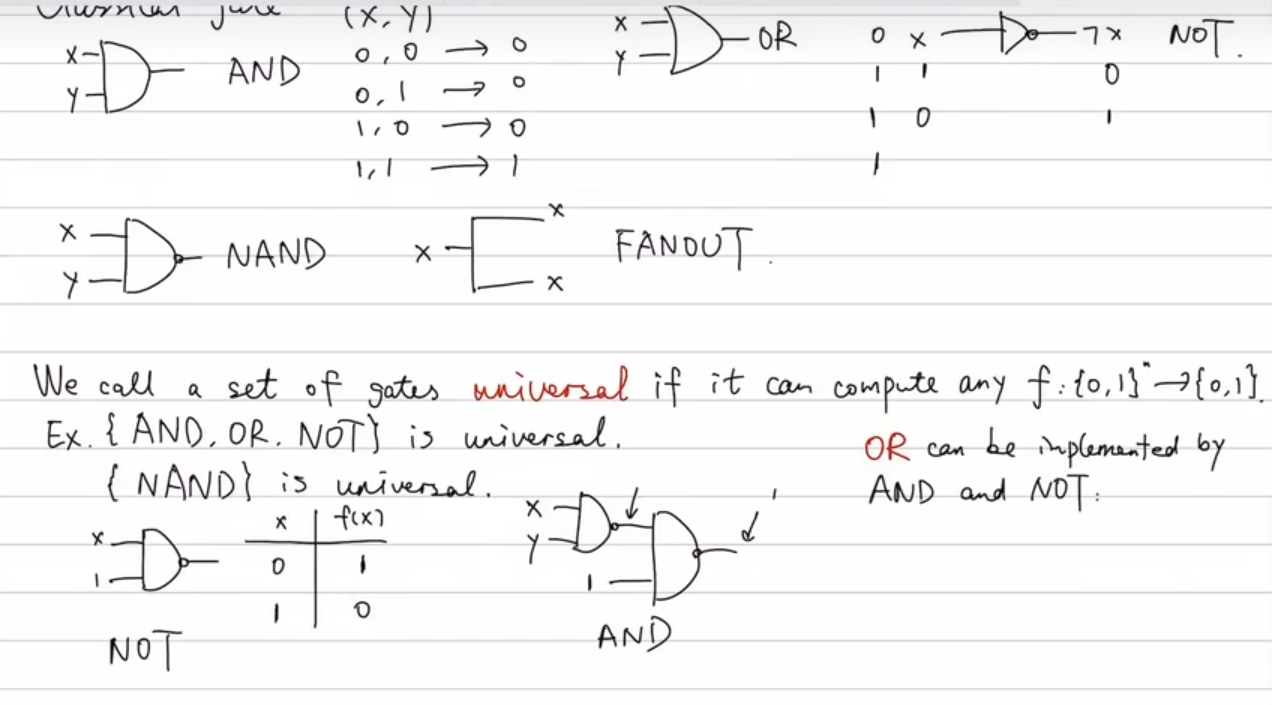 (x, y)
x
y
AND
0, 0 → 0
0, 1 → 0
1, 0 → 0
1, 1 → 1
x
y
OR
0
1
1
1
x ¬x NOT.
1 0
0 1
x
y
NAND
x
x
x
FANOUT.
We call a set of gates universal if it can compute any f: {0,1}ⁿ → {0,1}.
Ex. {AND, OR, NOT} is universal.
{NAND} is universal.
OR can be implemented by
AND and NOT:
x
1
NOT
x f(x)
0 1
1 0
x
y
1
AND